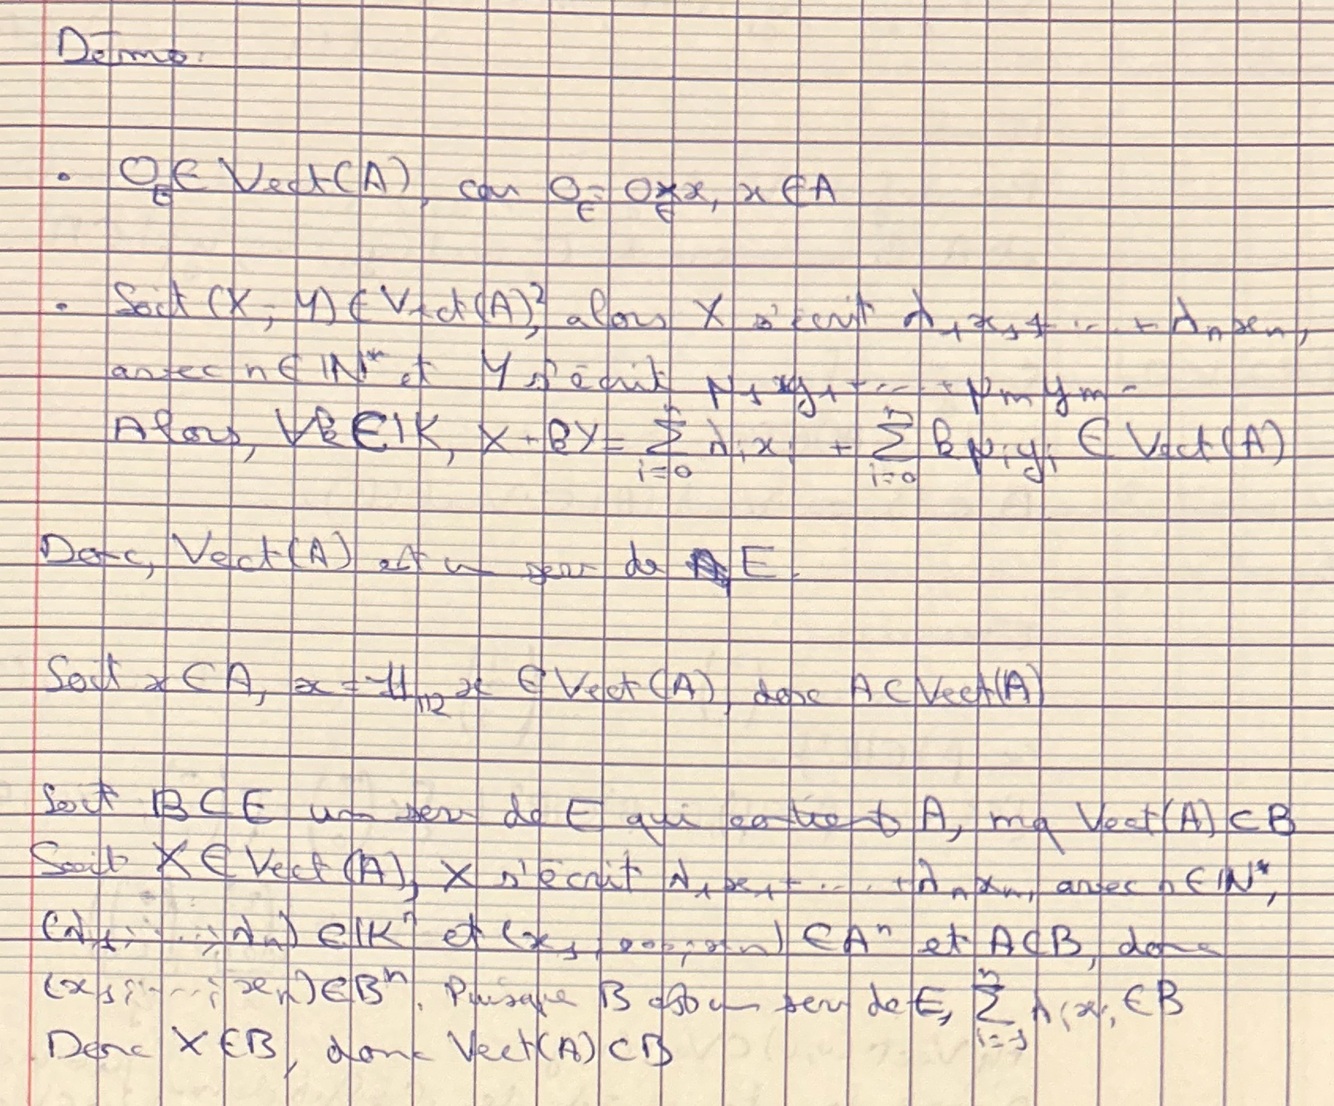 Démo:
• 0_E ∈ Vect(A), car 0_E = 0_K x, x ∈ A
• Soit (X, Y) ∈ Vect(A)², alors X s'écrit λ₁x₁ + ... + λₙxₙ,
avec n ∈ ℕ* et Y s'écrit μ₁y₁ + ... + μₘyₘ.
Alors, ∀β ∈ 𝕂, X + βY = Σ_{i=0}^{n} λᵢxᵢ + Σ_{i=0}^{n} βμᵢyᵢ ∈ Vect(A)
Donc, Vect(A) est un sev de E.
Soit x ∈ A, x = 1_𝕂 x ∈ Vect(A), donc A ⊂ Vect(A)
Soit B ⊂ E un sev de E qui contient A, mq Vect(A) ⊂ B
Soit X ∈ Vect(A), X s'écrit λ₁x₁ + ... + λₙxₙ, avec n ∈ ℕ*,
(λ₁; ...; λₙ) ∈ 𝕂ⁿ et (x₁, ..., xₙ) ∈ Aⁿ et A ⊂ B, donc
(x₁; ...; xₙ) ∈ Bⁿ. Puisque B est un sev de E, Σ_{i=1}^{n} λᵢxᵢ ∈ B
Donc X ∈ B, donc Vect(A) ⊂ B